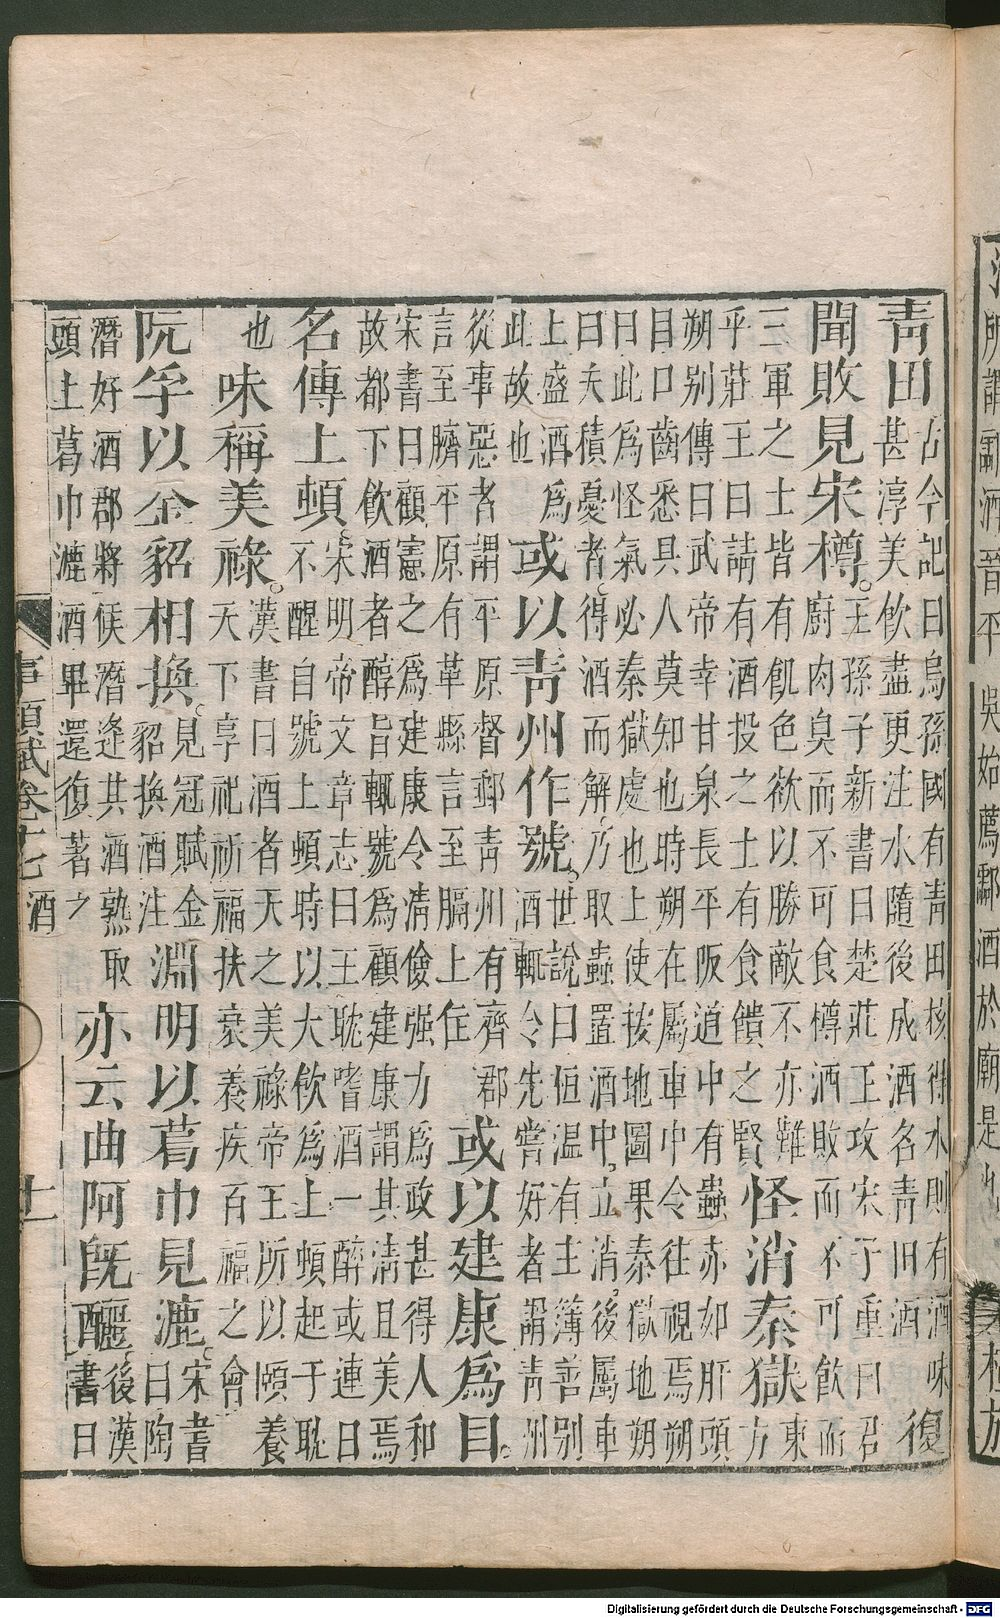 所謂酎酒昔平 吳始薦酃酒於廟是也
青田
古今記曰烏孫國有青田核得水則有酒味
甚淳美飲盡更注水隨後成酒名青田酒
復
聞敗見宋樽。
王孫子新書曰楚莊王攻宋子重曰君
廚肉臭而不可食樽酒敗而不可飲而
三軍之士皆有飢色欲以勝敵不亦難
乎莊王曰請有酒投之士有食饋之賢
怪消秦獄
東
方
朔別傳曰武帝幸甘泉長平阪道中有蟲赤如肝頭
目口齒悉具人莫知也時朔在屬車中令往視焉朔
曰此爲怪氣必秦獄處也上使按地圖果秦獄地朔
曰夫積憂者得酒而解乃取蟲置酒中立消後屬車
上盛酒爲
此故也
或以青州作號。
世說曰桓温有主簿善別
酒輒令先嘗好者謂青州
從事惡者謂平原督郵青州有齊郡
言至臍平原有革縣言至膈上住
或以建康爲目。
宋書曰顧憲之爲建康令清儉强力爲政甚得人和
故都下飲酒者醇旨輒號爲顧建康謂其清且美焉
名傳上頓。
宋明帝文章志曰王耽嗜酒一醉或連日
不醒自號上頓時以大飲爲上頓起于耽
也
味稱美祿。
漢書曰酒者天之美祿帝王所以頤養
天下享祀祈福扶衰養疾百福之會
阮孚以金貂相換。
見冠賦金
貂換酒注
淵明以葛巾見漉。
宋書
曰陶
潛好酒郡將候潛逢其酒熟取
頭上葛巾漉酒畢還復著之
亦云曲阿既釃。
後漢
書曰
事類賦卷十七 酒 十一
Digitalisierung gefördert durch die Deutsche Forschungsgemeinschaft - DFG